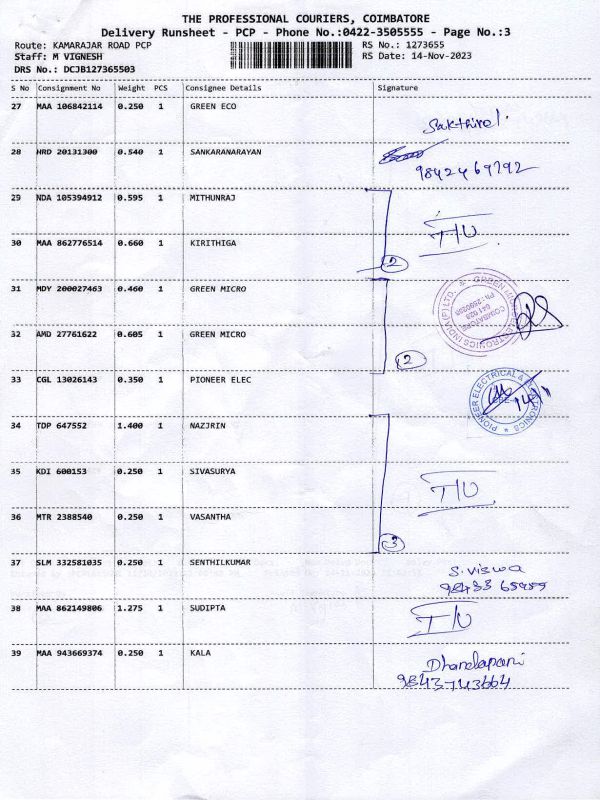 THE PROFESSIONAL COURIERS, COIMBATORE
Delivery Runsheet - PCP - Phone No.:0422-3505555 - Page No.:3
Route: KAMARAJAR ROAD PCP RS No.: 1273655
Staff: M VIGNESH RS Date: 14-Nov-2023
DRS No.: DCJB127365503
S No Consignment No Weight PCS Consignee Details Signature
27 MAA 106842114 0.250 1 GREEN ECO Sakthivel.
28 HRD 20131300 0.540 1 SANKARANARAYAN 9842469792
29 NDA 105394912 0.595 1 MITHUNRAJ
T/U
30 MAA 862776514 0.660 1 KIRITHIGA
2
31 MDY 200027463 0.460 1 GREEN MICRO
32 AMD 27761622 0.605 1 GREEN MICRO
2
33 CGL 13026143 0.350 1 PIONEER ELEC PIONEER ELECTRICAL &
34 TDP 647552 1.400 1 NAZJRIN
35 KDI 600153 0.250 1 SIVASURYA T/U
36 MTR 2388540 0.250 1 VASANTHA
3
37 SLM 332581035 0.250 1 SENTHILKUMAR S. Viswa
38 MAA 862149806 1.275 1 SUDIPTA T/U
39 MAA 943669374 0.250 1 KALA Dhandapani
9843743664